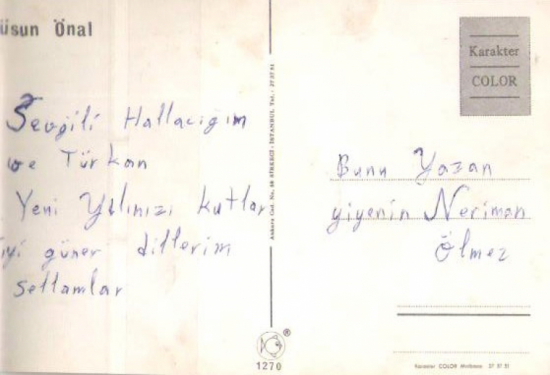 üsun Önal
Sevgili Hallacığım
ve Türkan
Yeni Yılınızı kutlar
iyi güner dillerim
sellamlar
Ankara Cad. No. SİRKECİ - İSTANBUL Tel.: 27 37 51
Karakter
COLOR
Bunu Yazan
yiyenin Neriman
Ölmez
®
1270
Karakter COLOR Matbaası 27 37 51